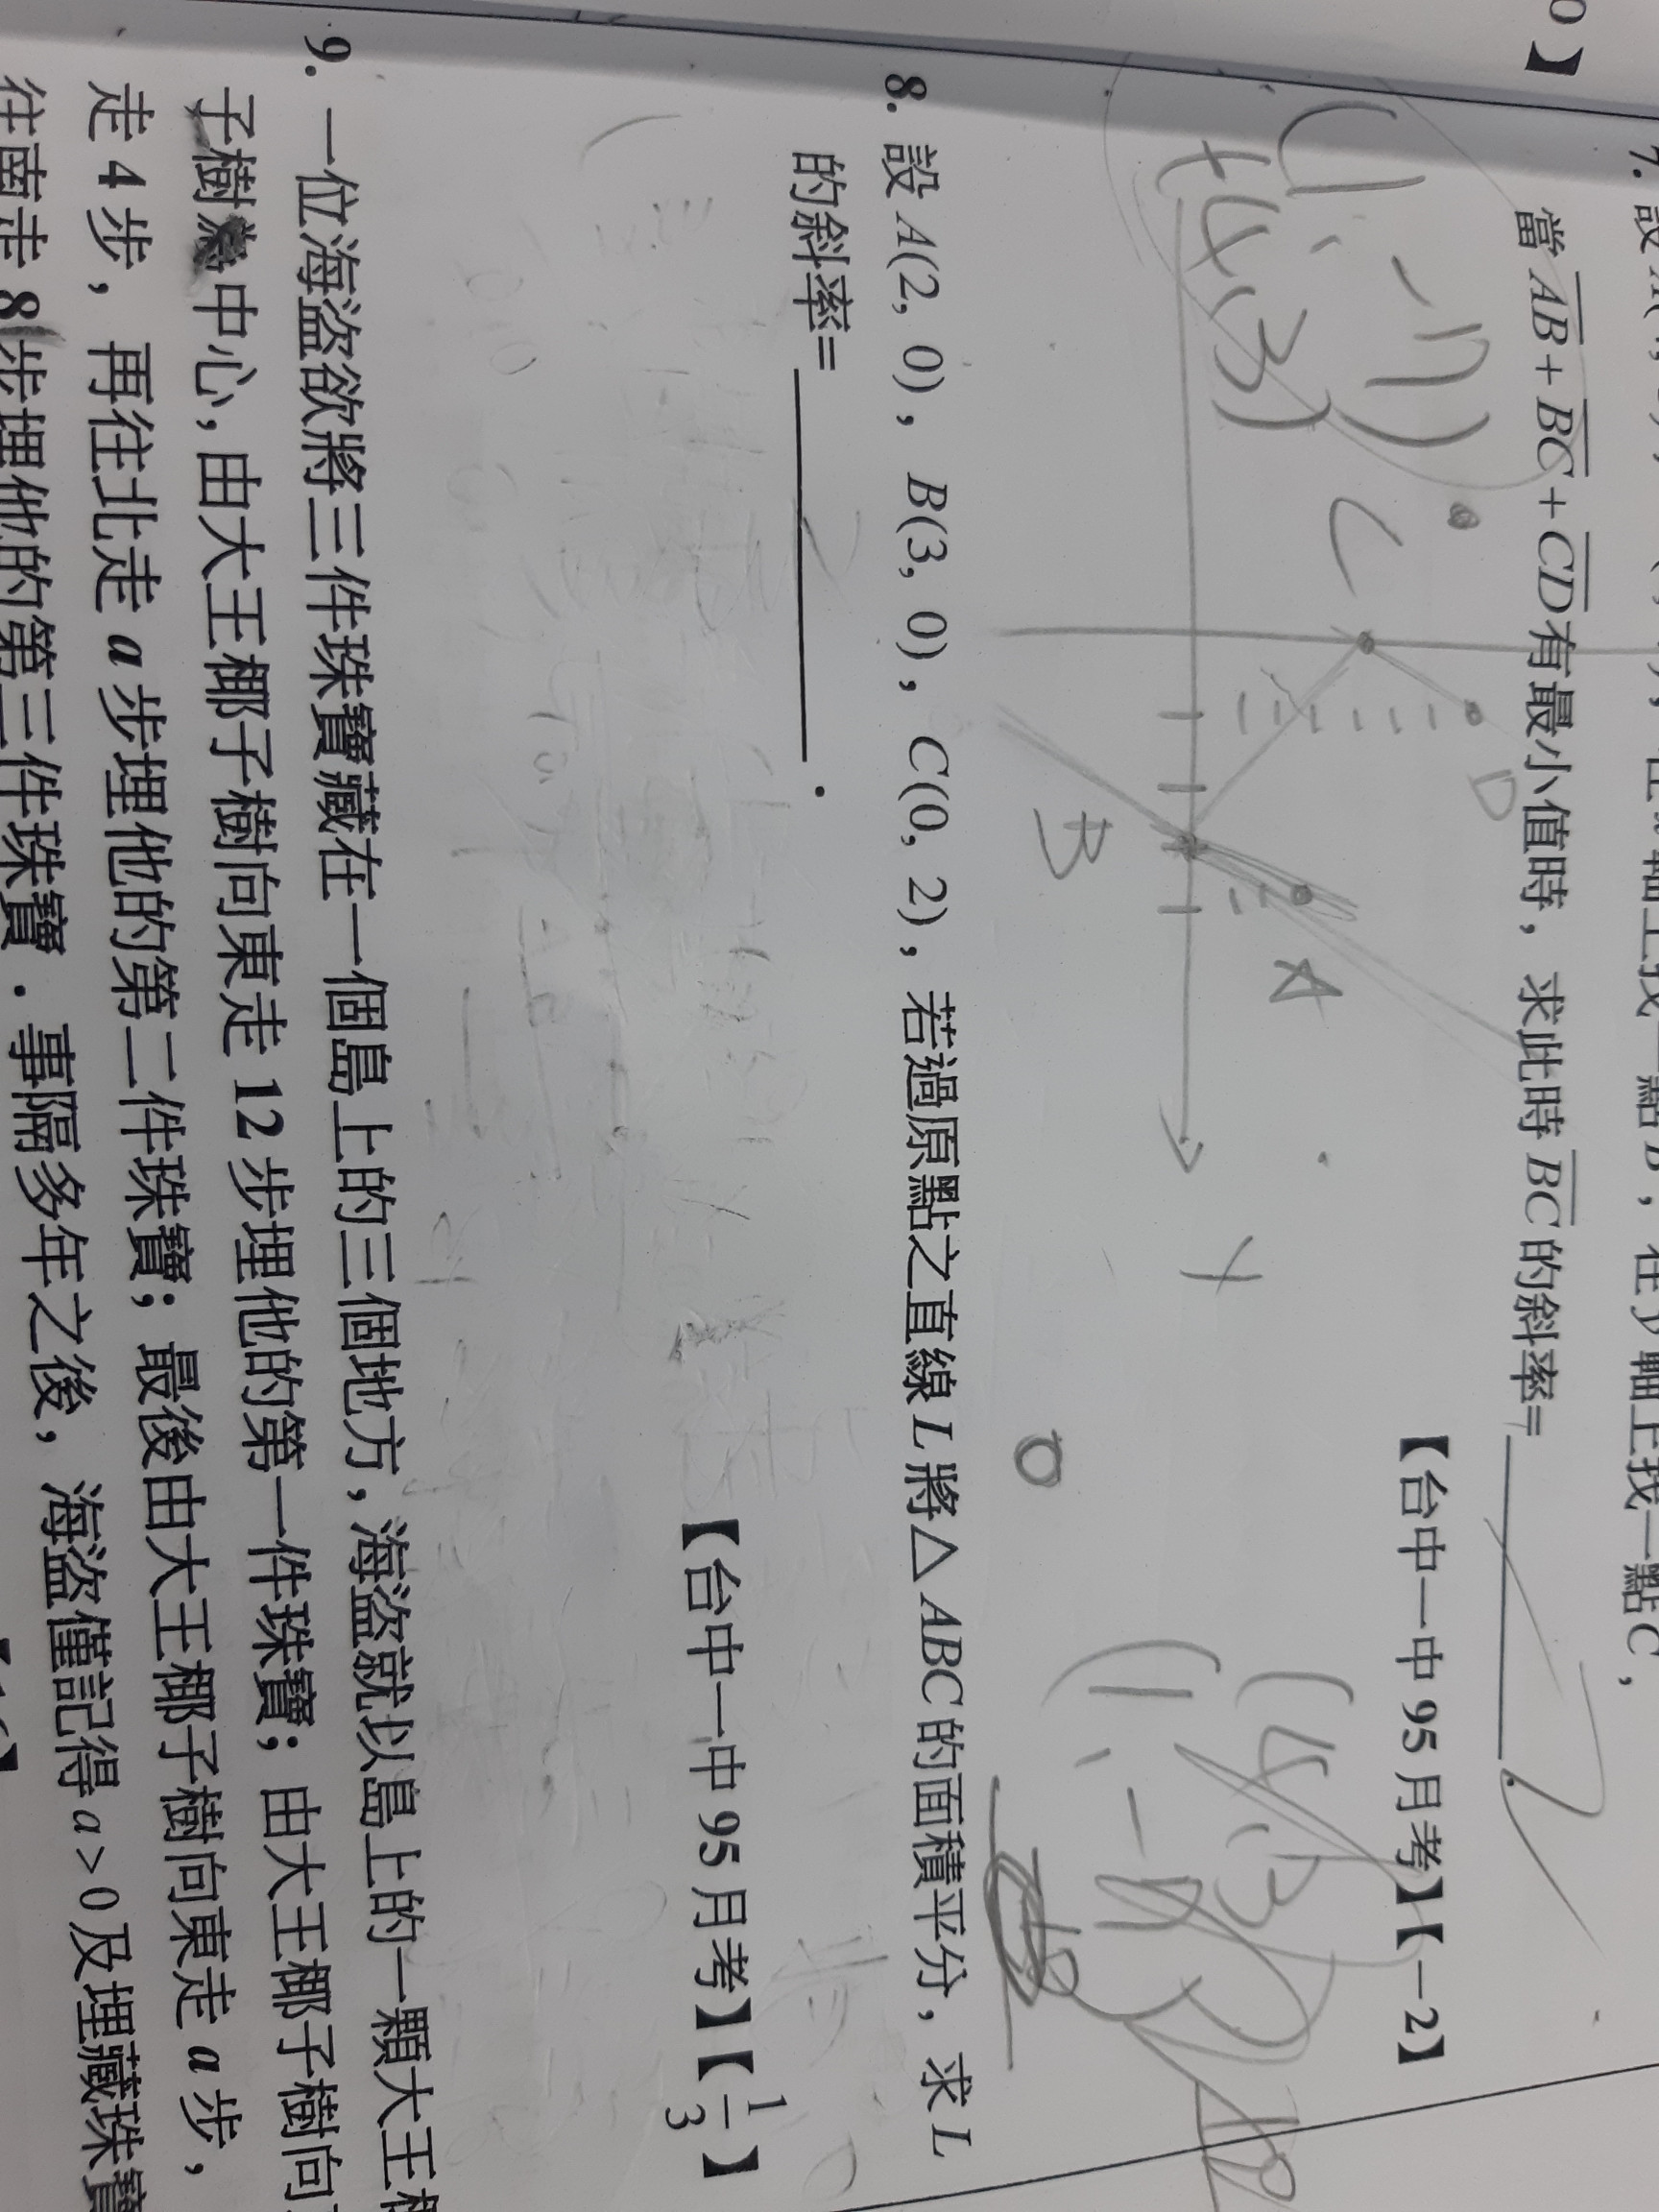 0】
當 AB + BC + CD 有最小值時，求此時 BC 的斜率=
【台中一中 95 月考】【－2】
(1, -7)
(4, 3)
C
D
A
B
8. 設 A(2, 0)，B(3, 0)，C(0, 2)，若過原點之直線 L 將△ABC 的面積平分，求 L
的斜率=            .
【台中一中 95 月考】【1/3】
9. 一位海盜欲將三件珠寶藏在一個島上的三個地方，海盜就以島上的一顆大王
子樹為中心，由大王椰子樹向東走 12 步埋他的第一件珠寶；由大王椰子樹向
走 4 步，再往北走 a 步埋他的第二件珠寶；最後由大王椰子樹向東走 a 步，
往南走 8 步埋他的第三件珠寶．事隔多年之後，海盜僅記得 a > 0 及埋藏珠寶